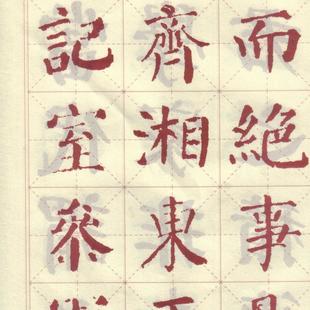 而絶事
齊湘東
記室參